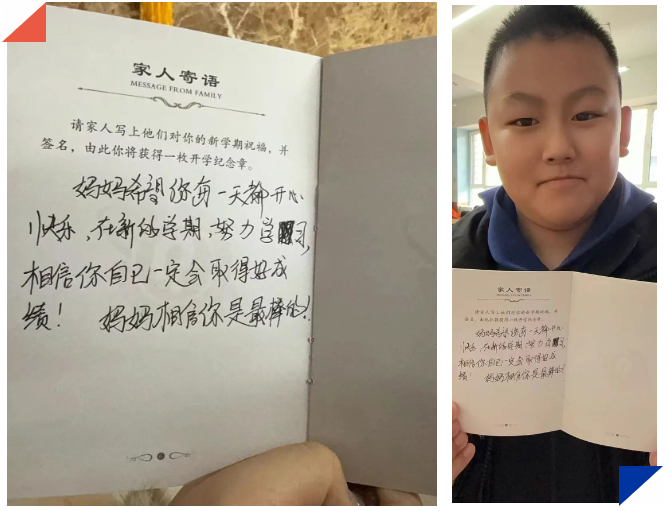 家人寄语
MESSAGE FROM FAMILY
请家人写上他们对你的新学期祝福，并
签名，由此你将获得一枚开学纪念章。
妈妈希望你每一天都开心
快乐，在新的学期，努力学习，
相信你自己一定会取得好成
绩！ 妈妈相信你是最棒的！
家人寄语
MESSAGE FROM FAMILY
请家人写上他们对你的新学期祝福，并
签名，由此你将获得一枚开学纪念章。
妈妈希望你每一天都开心
快乐，在新的学期，努力学习，
相信你自己一定会取得好成
绩！ 妈妈相信你是最棒的！